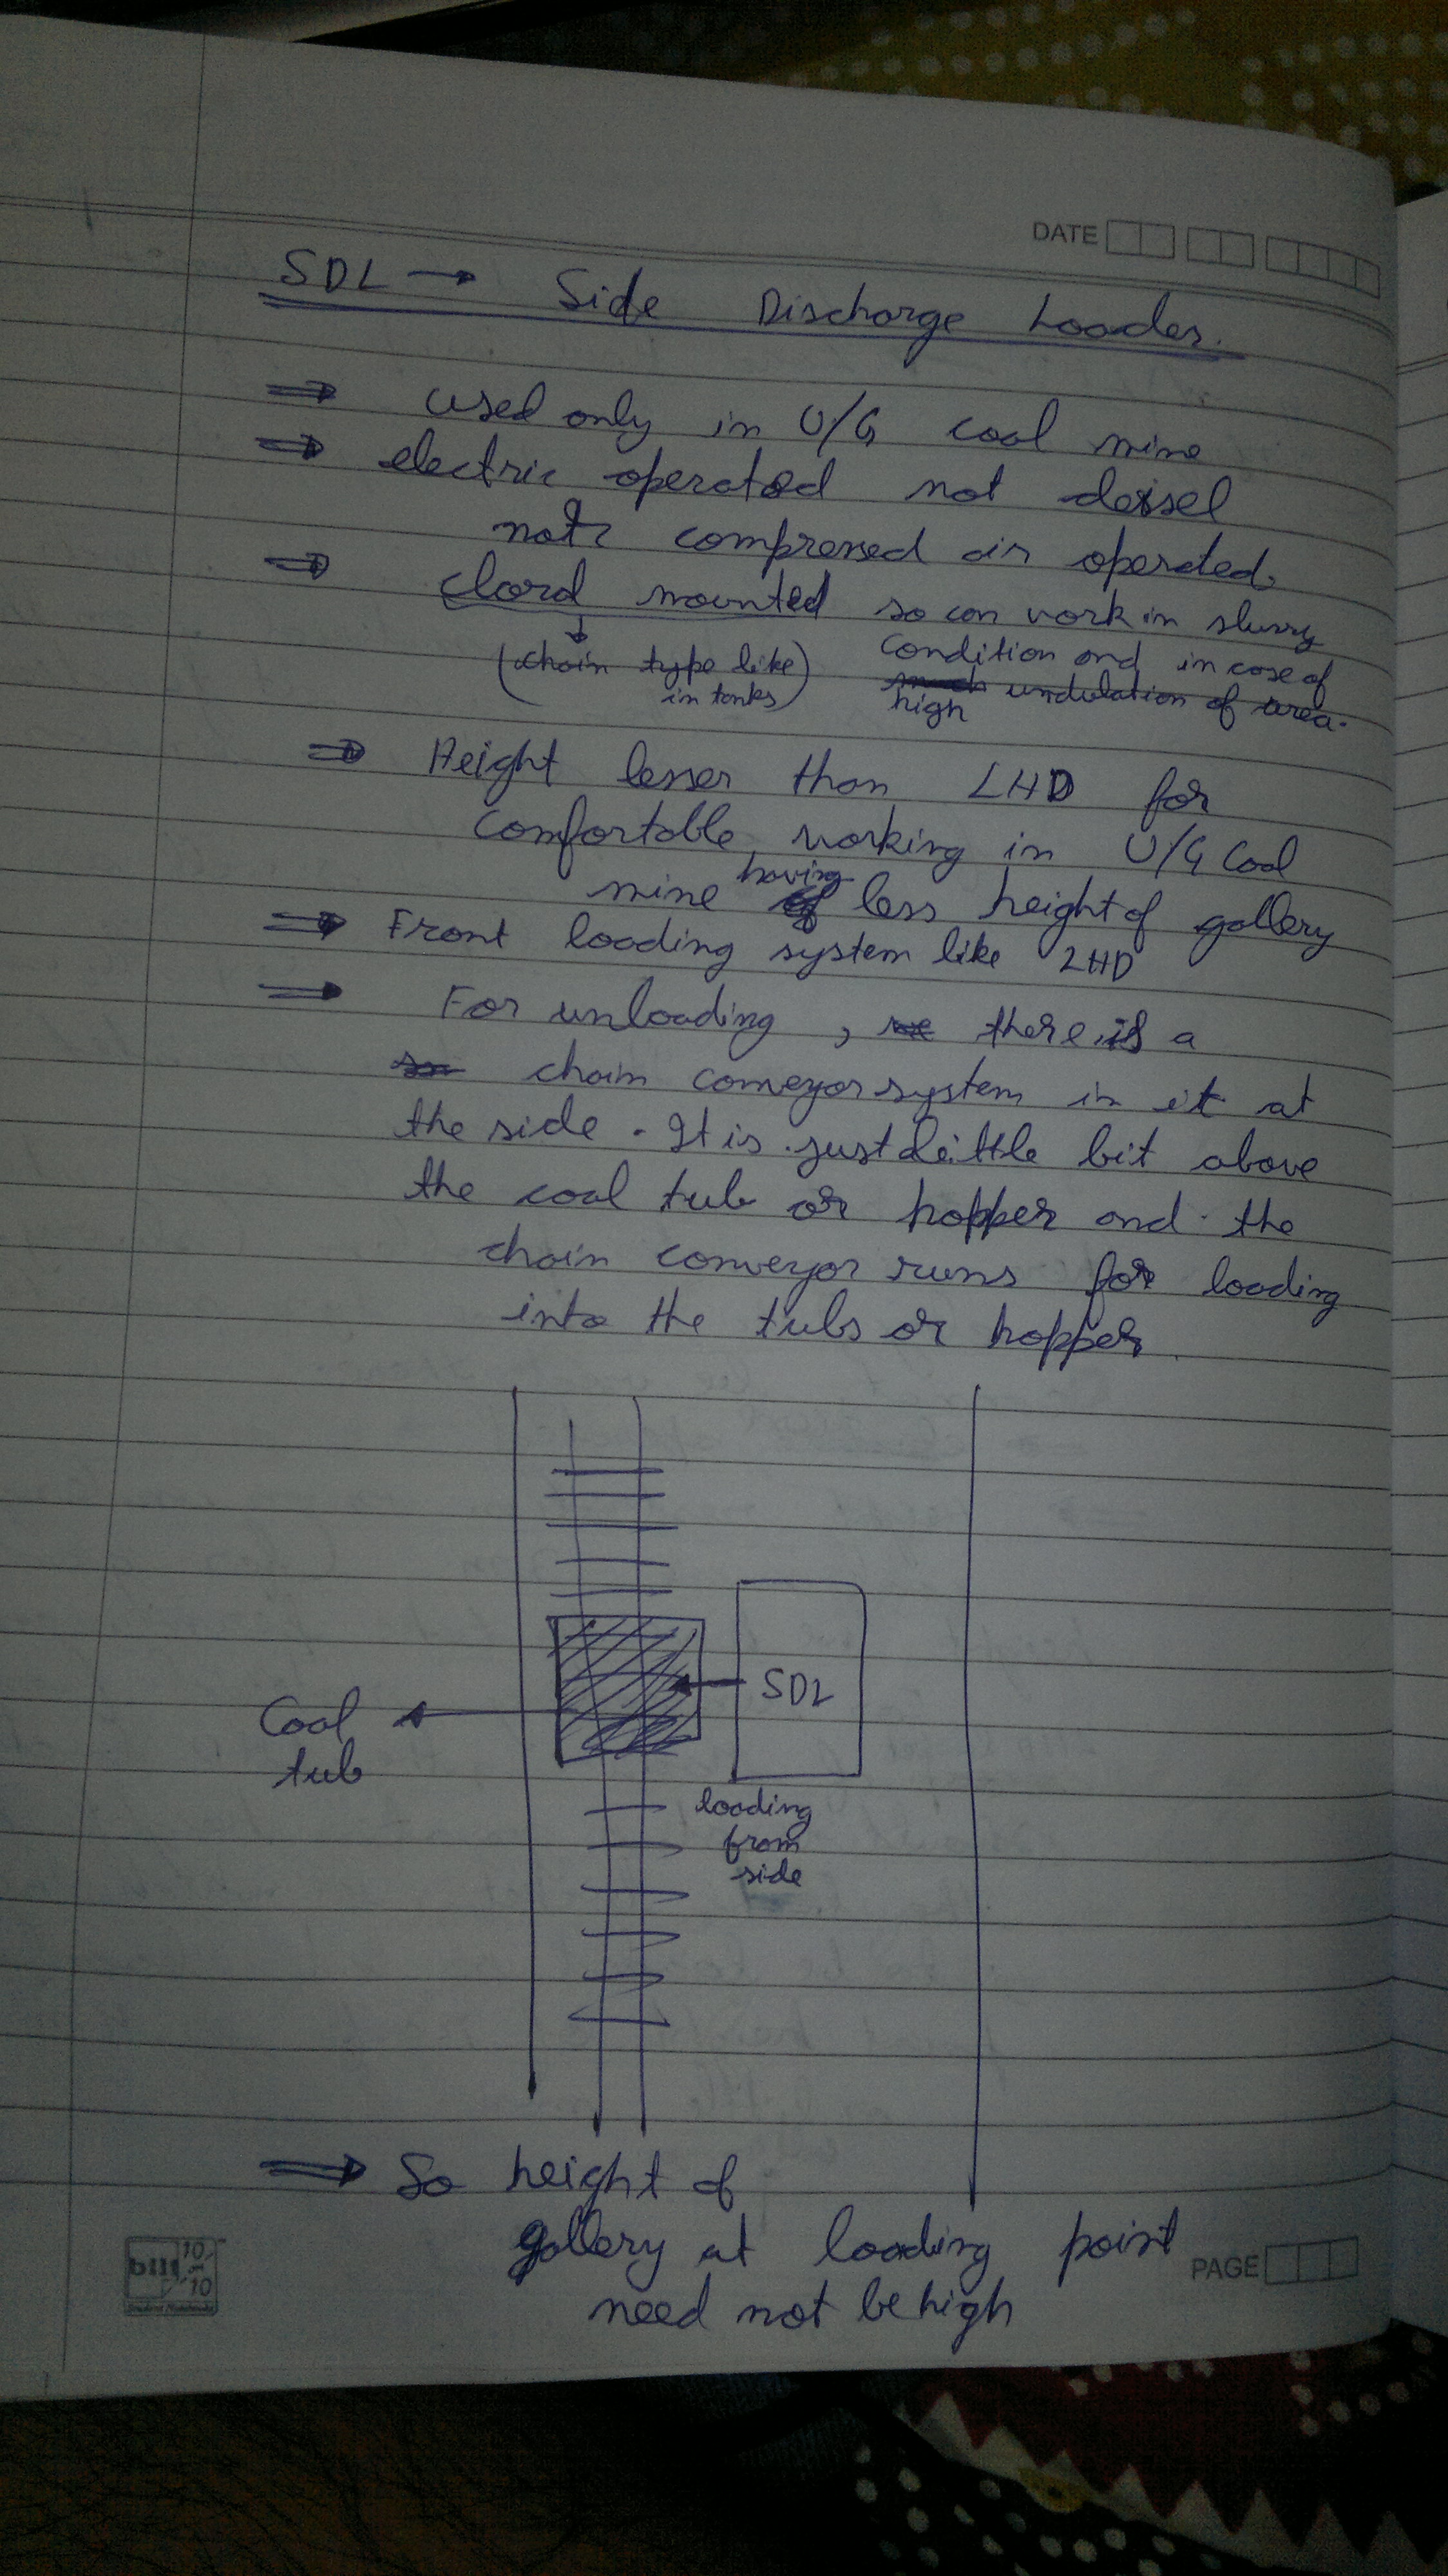 DATE
SDL → Side Discharge Loader.
⇒ used only in U/G coal mine
⇒ electric operated not deisel
not compressed air operated.
⇒ clard mounted so can work in slurry
(chain type like in tanks) condition and in case of
high undulation of area.
⇒ Height lesser than LHD for
comfortable working in U/G Coal
mine having less height of gallery
⇒ Front loading system like LHD
⇒ For unloading, there is a
chain conveyor system in it at
the side. It is just little bit above
the coal tub or hopper and the
chain conveyor runs for loading
into the tubs or hopper
SDL
Coal
tub
loading
from
side
⇒ So height of
gallery at loading point
need not be high
PAGE
bilt 10 on 10